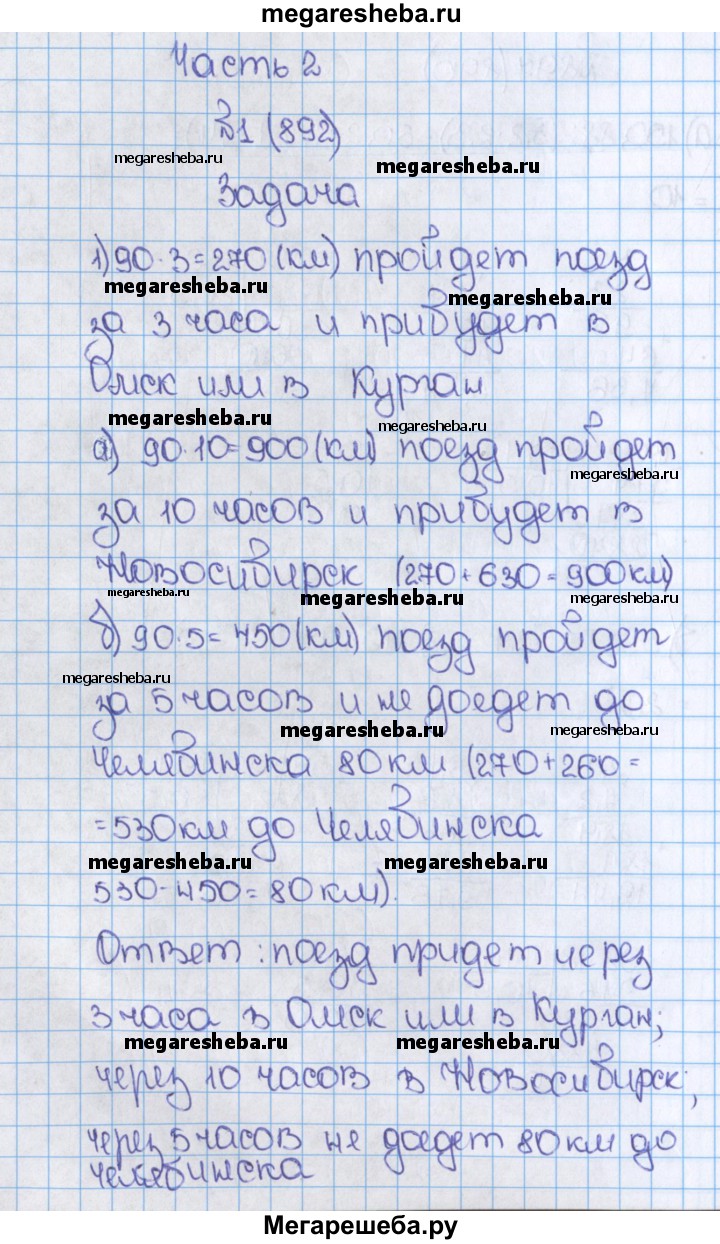 megaresheba.ru
Часть 2
№1 (892)
megaresheba.ru
megaresheba.ru
Задача
1) 90·3=270 (км) пройдет поезд
megaresheba.ru
megaresheba.ru
за 3 часа и прибудет в
Омск или в Курган
megaresheba.ru
megaresheba.ru
а) 90·10=900 (км) поезд пройдет
megaresheba.ru
за 10 часов и прибудет в
Новосибирск (270+630=900км)
megaresheba.ru
megaresheba.ru
megaresheba.ru
б) 90·5=450 (км) поезд пройдет
megaresheba.ru
за 5 часов и не доедет до
megaresheba.ru
megaresheba.ru
Челябинска 80 км (270+260=
=530км до Челябинска
megaresheba.ru
megaresheba.ru
530-450=80км).
Ответ: поезд придет через
3 часа в Омск или в Курган;
megaresheba.ru
megaresheba.ru
через 10 часов в Новосибирск;
через 5 часов не доедет 80 км до
челябинска
Мегарешеба.ру